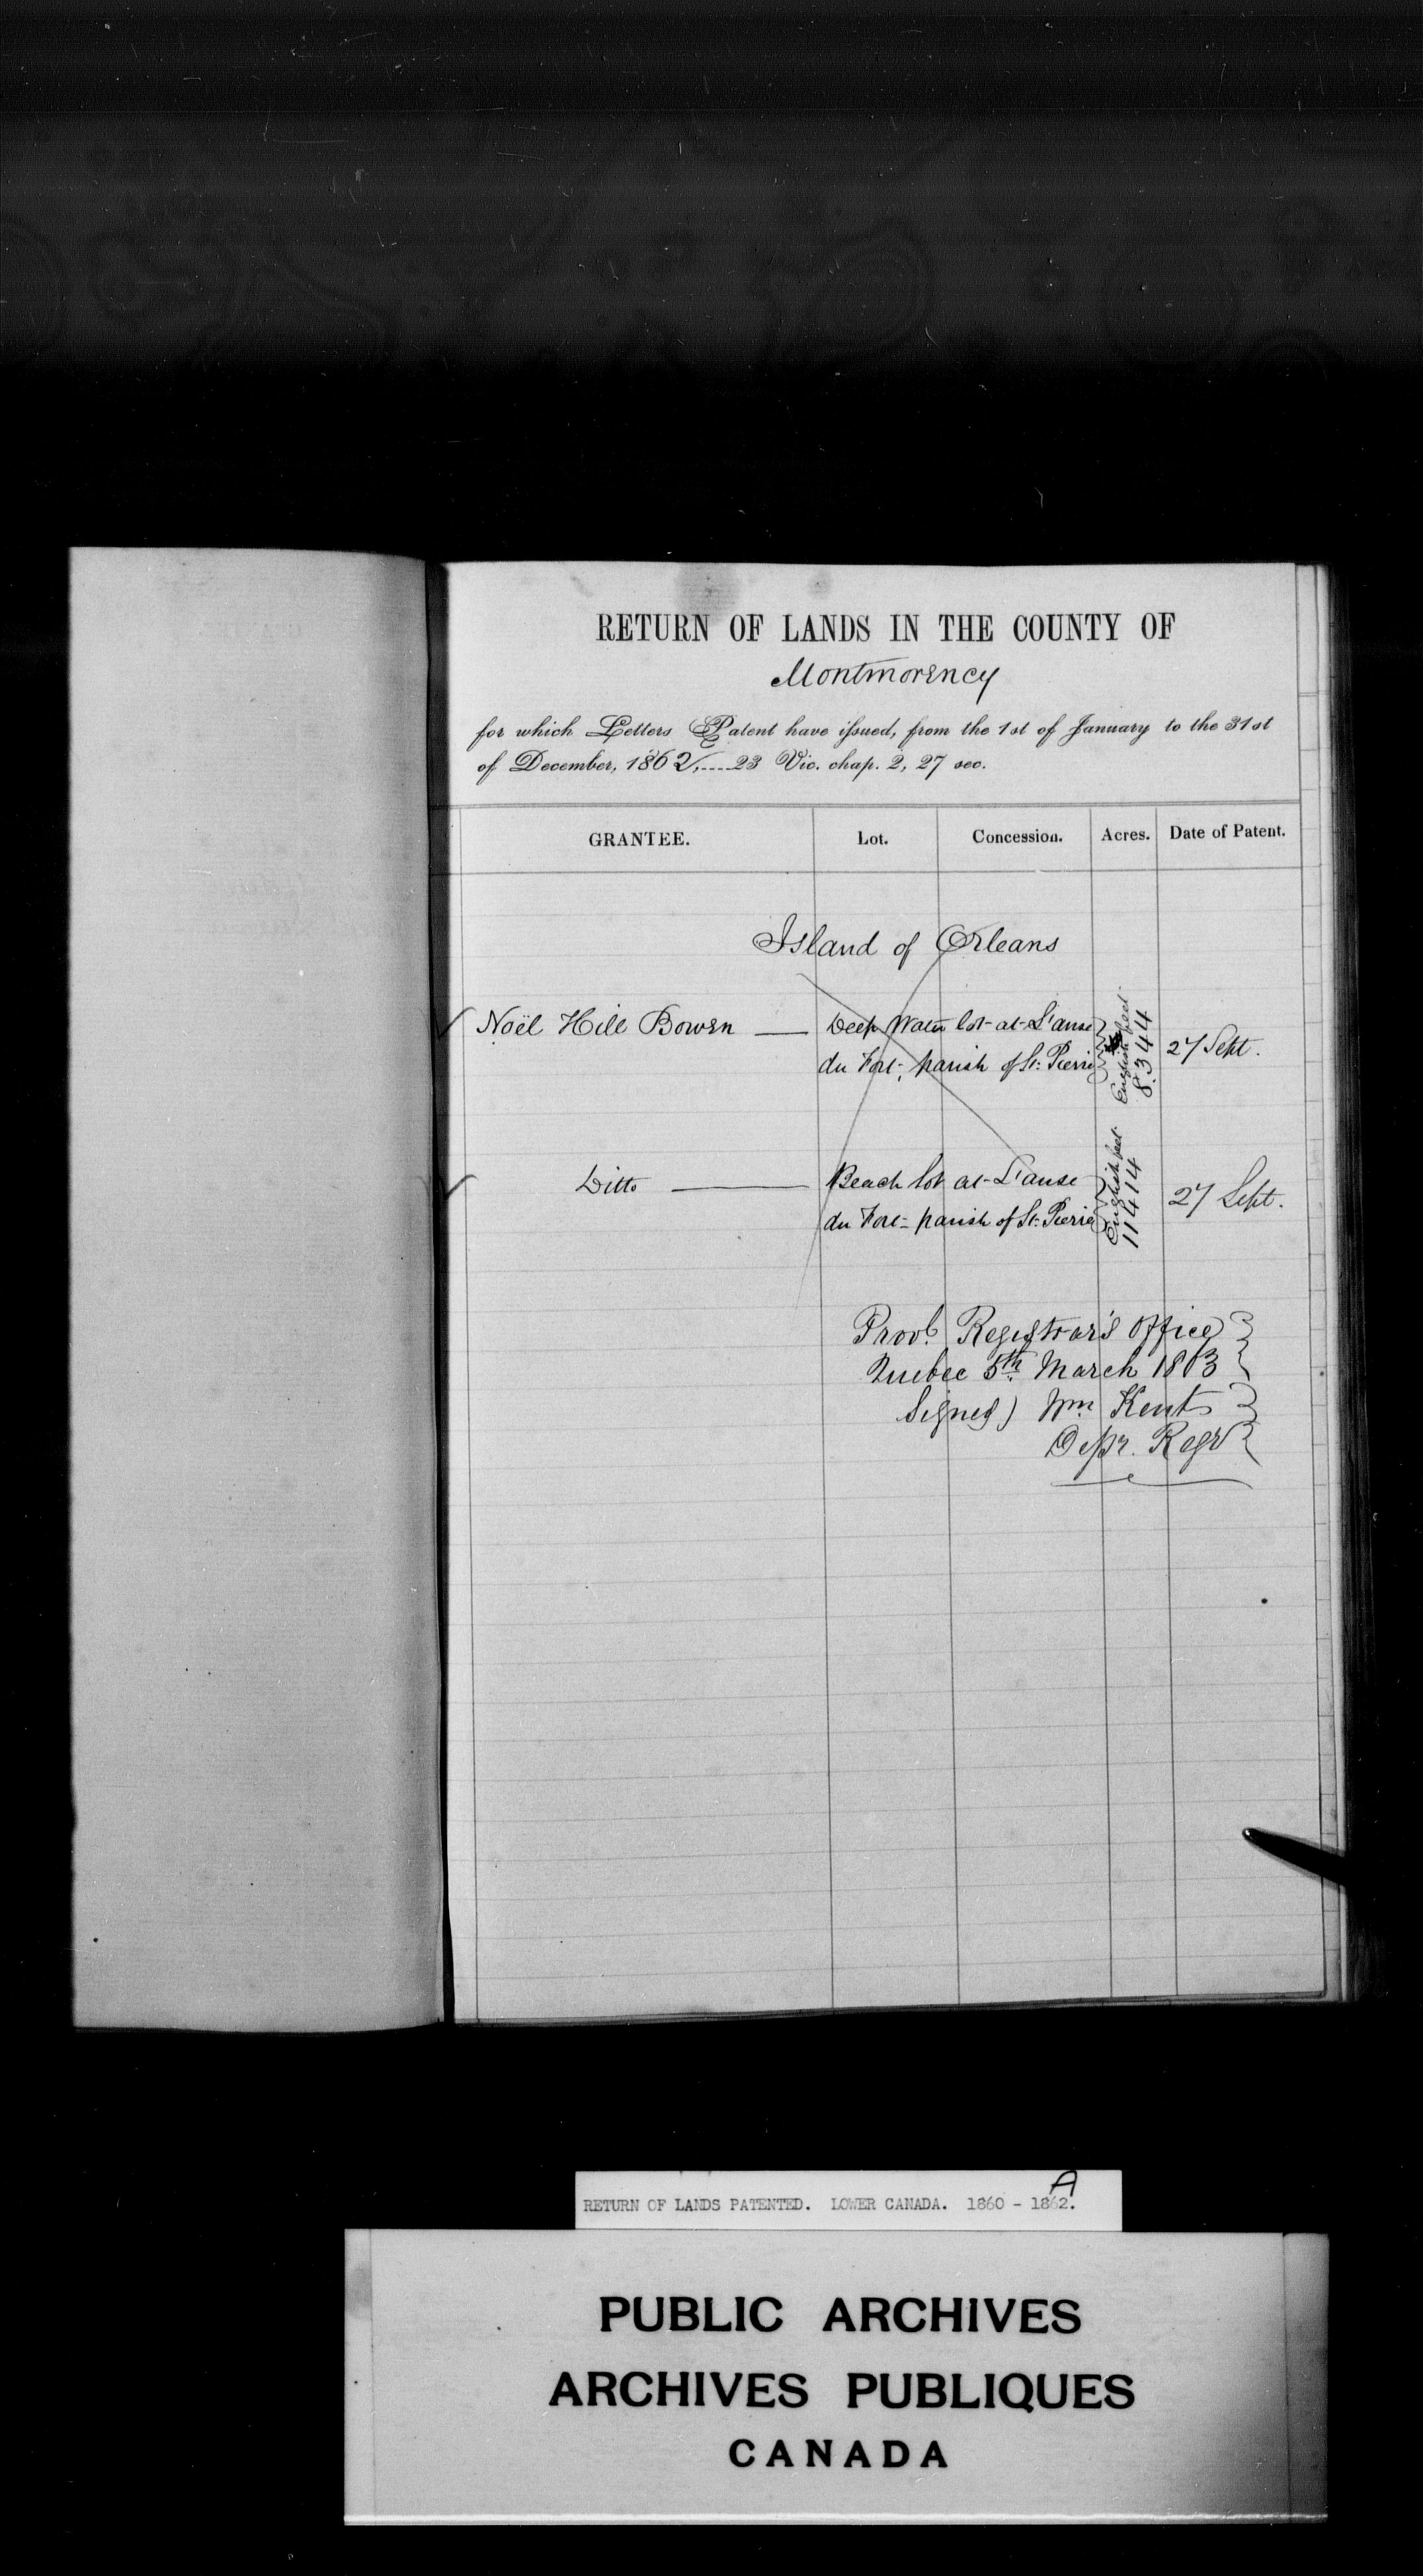 RETURN OF LANDS IN THE COUNTY OF
Montmorency
for which Letters Patent have issued, from the 1st of January to the 31st
of December, 1862,....23 Vic. chap. 2, 27 sec.
GRANTEE. Lot. Concession. Acres. Date of Patent.
Island of Orleans
Noël Hill Bowen — Deep Water lot at L'anse
du Fort, parish of St. Pierre English feet 8344 27 Sept.
Ditto — Beach lot at L'anse
du Fort parish of St. Pierre English feet 11414 27 Sept.
Provl. Registrar's Office
Quebec 5th March 1863
Signed) Wm Kent
Depr. Regr
RETURN OF LANDS PATENTED. LOWER CANADA. 1860 - 1862. A
PUBLIC ARCHIVES
ARCHIVES PUBLIQUES
CANADA